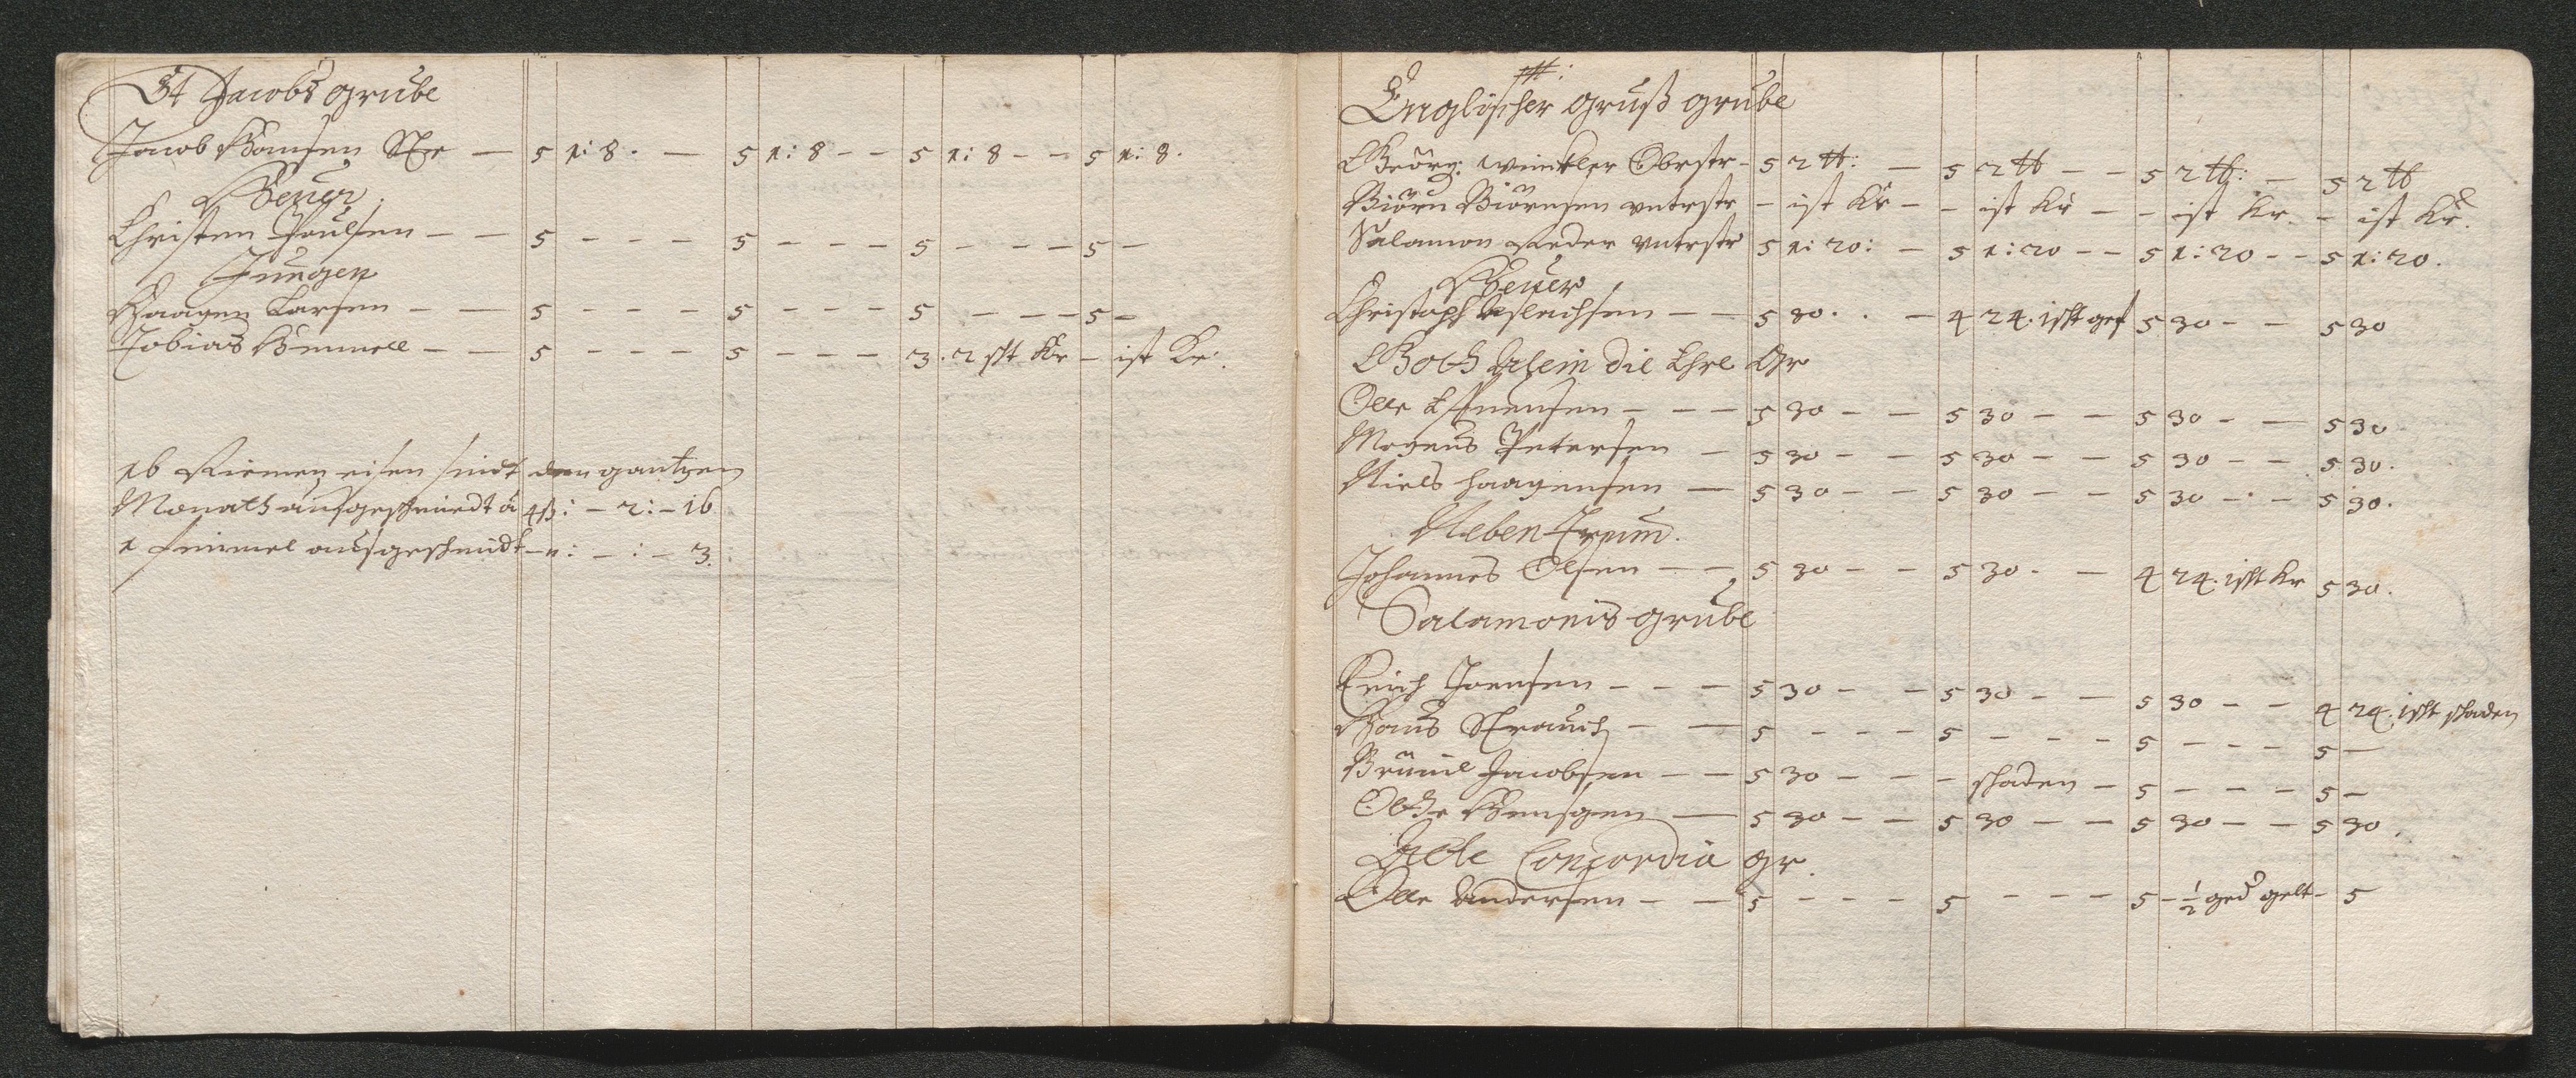 St Jacobs grube
Jacob Hansen Str — 5 1: 8. — 5 1: 8 - - 5 1: 8 - - 5 1: 8.
Heuer.
Christen Poulsen - - 5 - - - 5 - - - 5 - - - 5 -
Jungen
Haagen Larsen - — 5 - - - 5 - - - 5 - - - 5 -
Tobias Hemmell - — 5 - - - 5 - - - 3. 2 sht Kr - ist Kr:
16 Riemen eisen sindt den gantzen
Monath ausgeschmiedt á 4ß: - 2: - 16
1 fimmel ausgeschmidt - ": - : - 3.
Englischer gruß grube
Geörg: winckler Obrstr - 5 2 tt: — 5 2 tt - - 5 2 tt: - 5 2 tt
Biörn Biörnsen untrstr - ist Kr - - ist Kr - - ist Kr. - ist Kr.
Salamon Reder untrstr 5 1: 20: - 5 1: 20 - - 5 1: 20 - - 5 1: 20.
Heuer
Christoph Aslachsen - - 5 30. . - 4 24. 1 sht ges 5 30 - - 5 30
Goth Alein die Ehre Gr
Olle Efvensen - - - 5 30 - - 5 30 - - 5 30 - - 5 30
Mogens Petersen - 5 30 - - 5 30 - - 5 30 - - 5 30.
Niels haagensen — 5 30 - - 5 30 - - 5 30 - - 5 30.
Neben Trum.
Johannes Olsen - - 5 30 - - 5 30. - 4 24. 1 sht Kr 5 30.
Salamonis grube
Erich Joensen - - - 5 30 - - 5 30 - - 5 30 - - 4 24. 1 sht schaden
Hans Strauch - — 5 - - - 5 - - - 5 - - - 5 —
Brünil Jacobsen - - 5 30 - - - schaden - 5 - - - 5 -
Olle Hensgen — 5 30 - - 5 30 - - 5 30 - - 5 30.
Alte Concordia gr.
Olle Andersen - - 5 - - - 5 - - - 5 - ½ ged gelt - 5